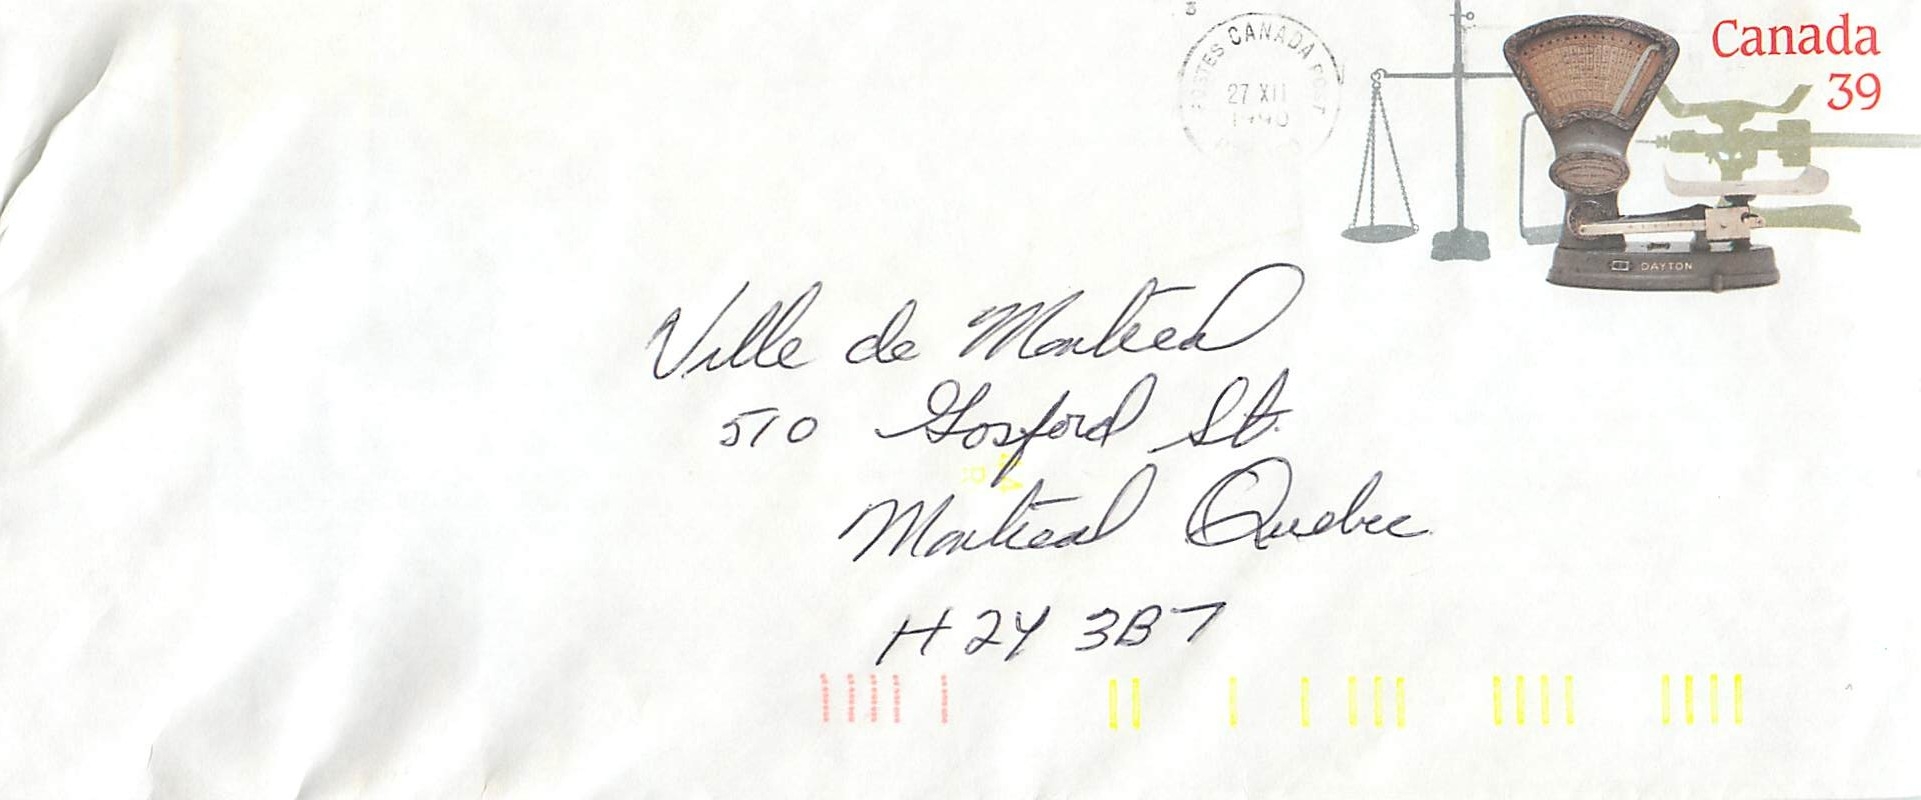 Canada
39
POSTES CANADA POST
27 XII
1990
DAYTON
Ville de Montreal
510 Gosford St.
Montreal Quebec
H2Y 3B7